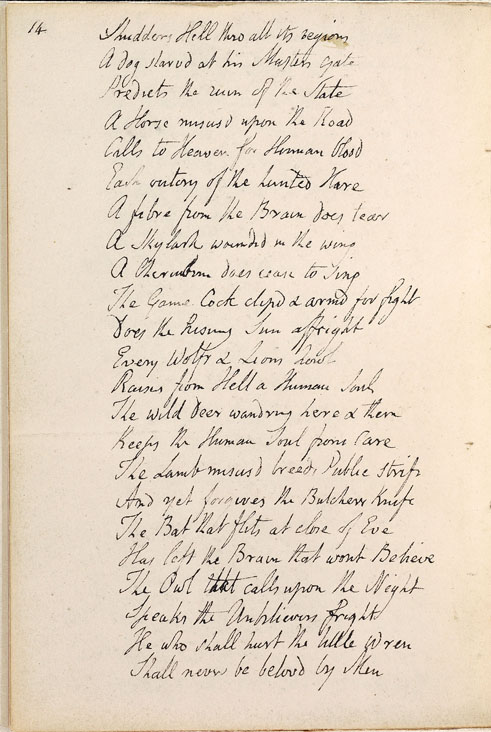 14
Shudders Hell thro all its regions
A dog starvd at his Masters Gate
Predicts the ruin of the State
A Horse misusd upon the Road
Calls to Heaven for Human blood
Each outcry of the hunted Hare
A fibre from the Brain does tear
A Skylark wounded in the wing
A Cherubim does cease to sing
The Game Cock clipd & armd for fight
Does the Rising Sun affright
Every Wolfs & Lions howl
Raises from Hell a Human Soul
The wild Deer wandring here & there
Keeps the Human Soul from Care
The Lamb misusd breeds Public strife
And yet forgives the Butchers Knife
The Bat that flits at close of Eve
Has left the Brain that wont Believe
The Owl that calls upon the Night
Speaks the Unbelievers fright
He who shall hurt the little Wren
Shall never be belovd by Men